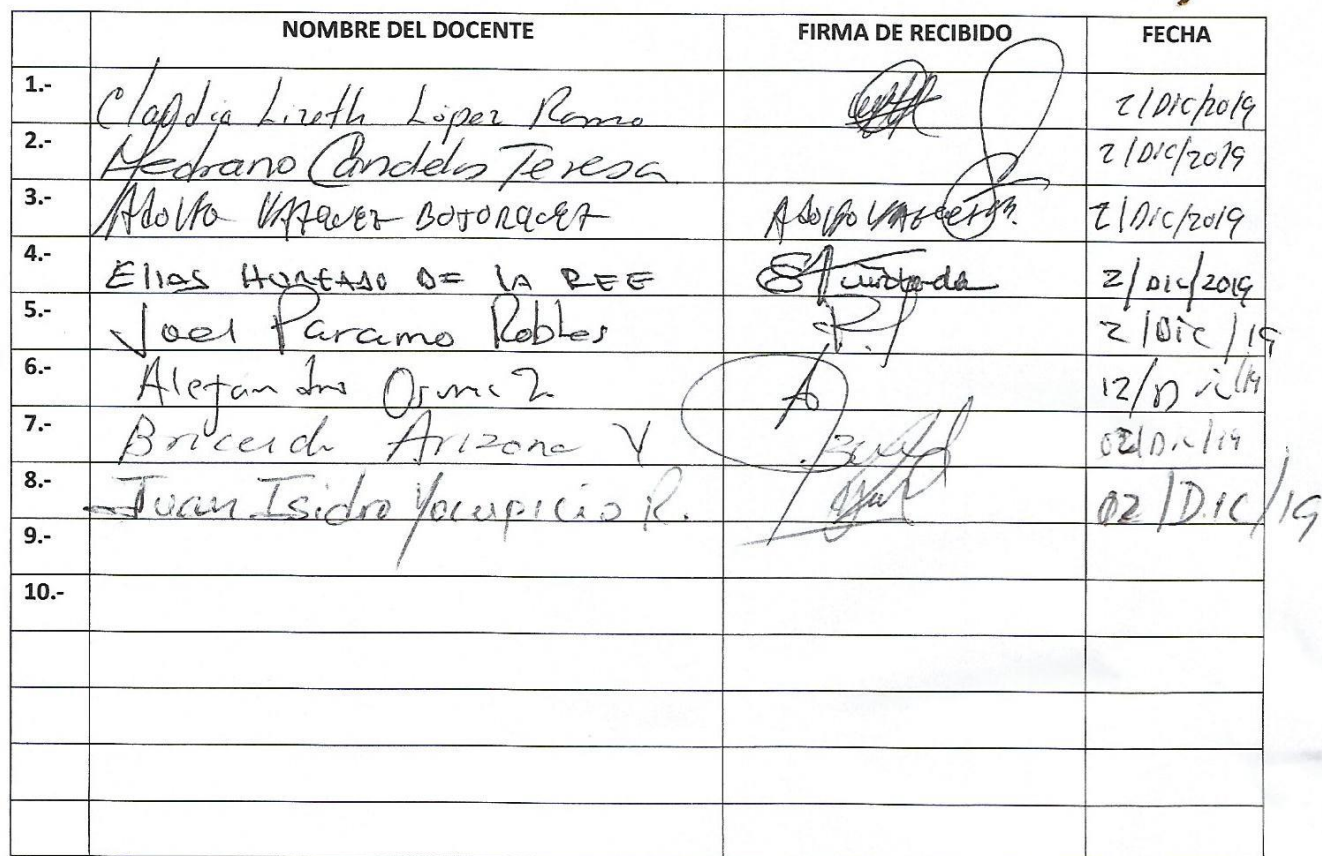 NOMBRE DEL DOCENTE FIRMA DE RECIBIDO FECHA
1.- Claudia Lizeth López Ramo 2/Dic/2019
2.- Medrano Candelas Teresa 2/Dic/2019
3.- Adolfo VAZQUEZ BOJORQUEZ Adolfo 2/Dic/2019
4.- Elias HURTADO DE LA REE 2/Dic/2019
5.- Joel Paramo Robles 2/Dic/19
6.- Alejandro 12/
7.- Briceida Arizona V 02/Dic/19
8.- Juan Isidro Yocupicio R. 02/Dic/19
9.-
10.-